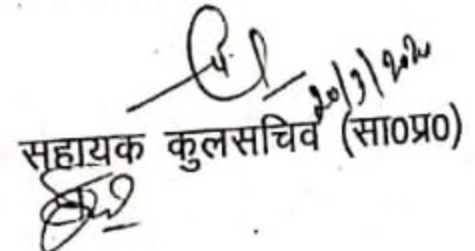 20/3/2020
सहायक कुलसचिव (सा०प्र०)